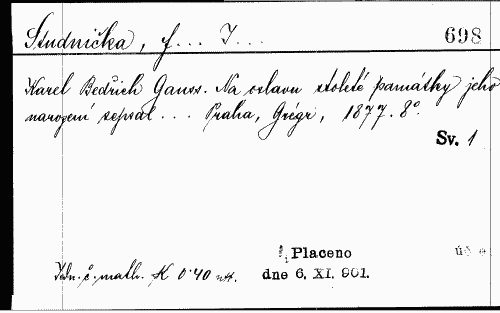 Studnička, f... J...
698
Karel Bedřich Gauss. Na oslavu stoleté památky jeho
narození sepsal... Praha, Grégr, 1877. 8°.
Sv. 1
Jedn. č. math. K 0·40
Placeno
dne 6. XI. 901.